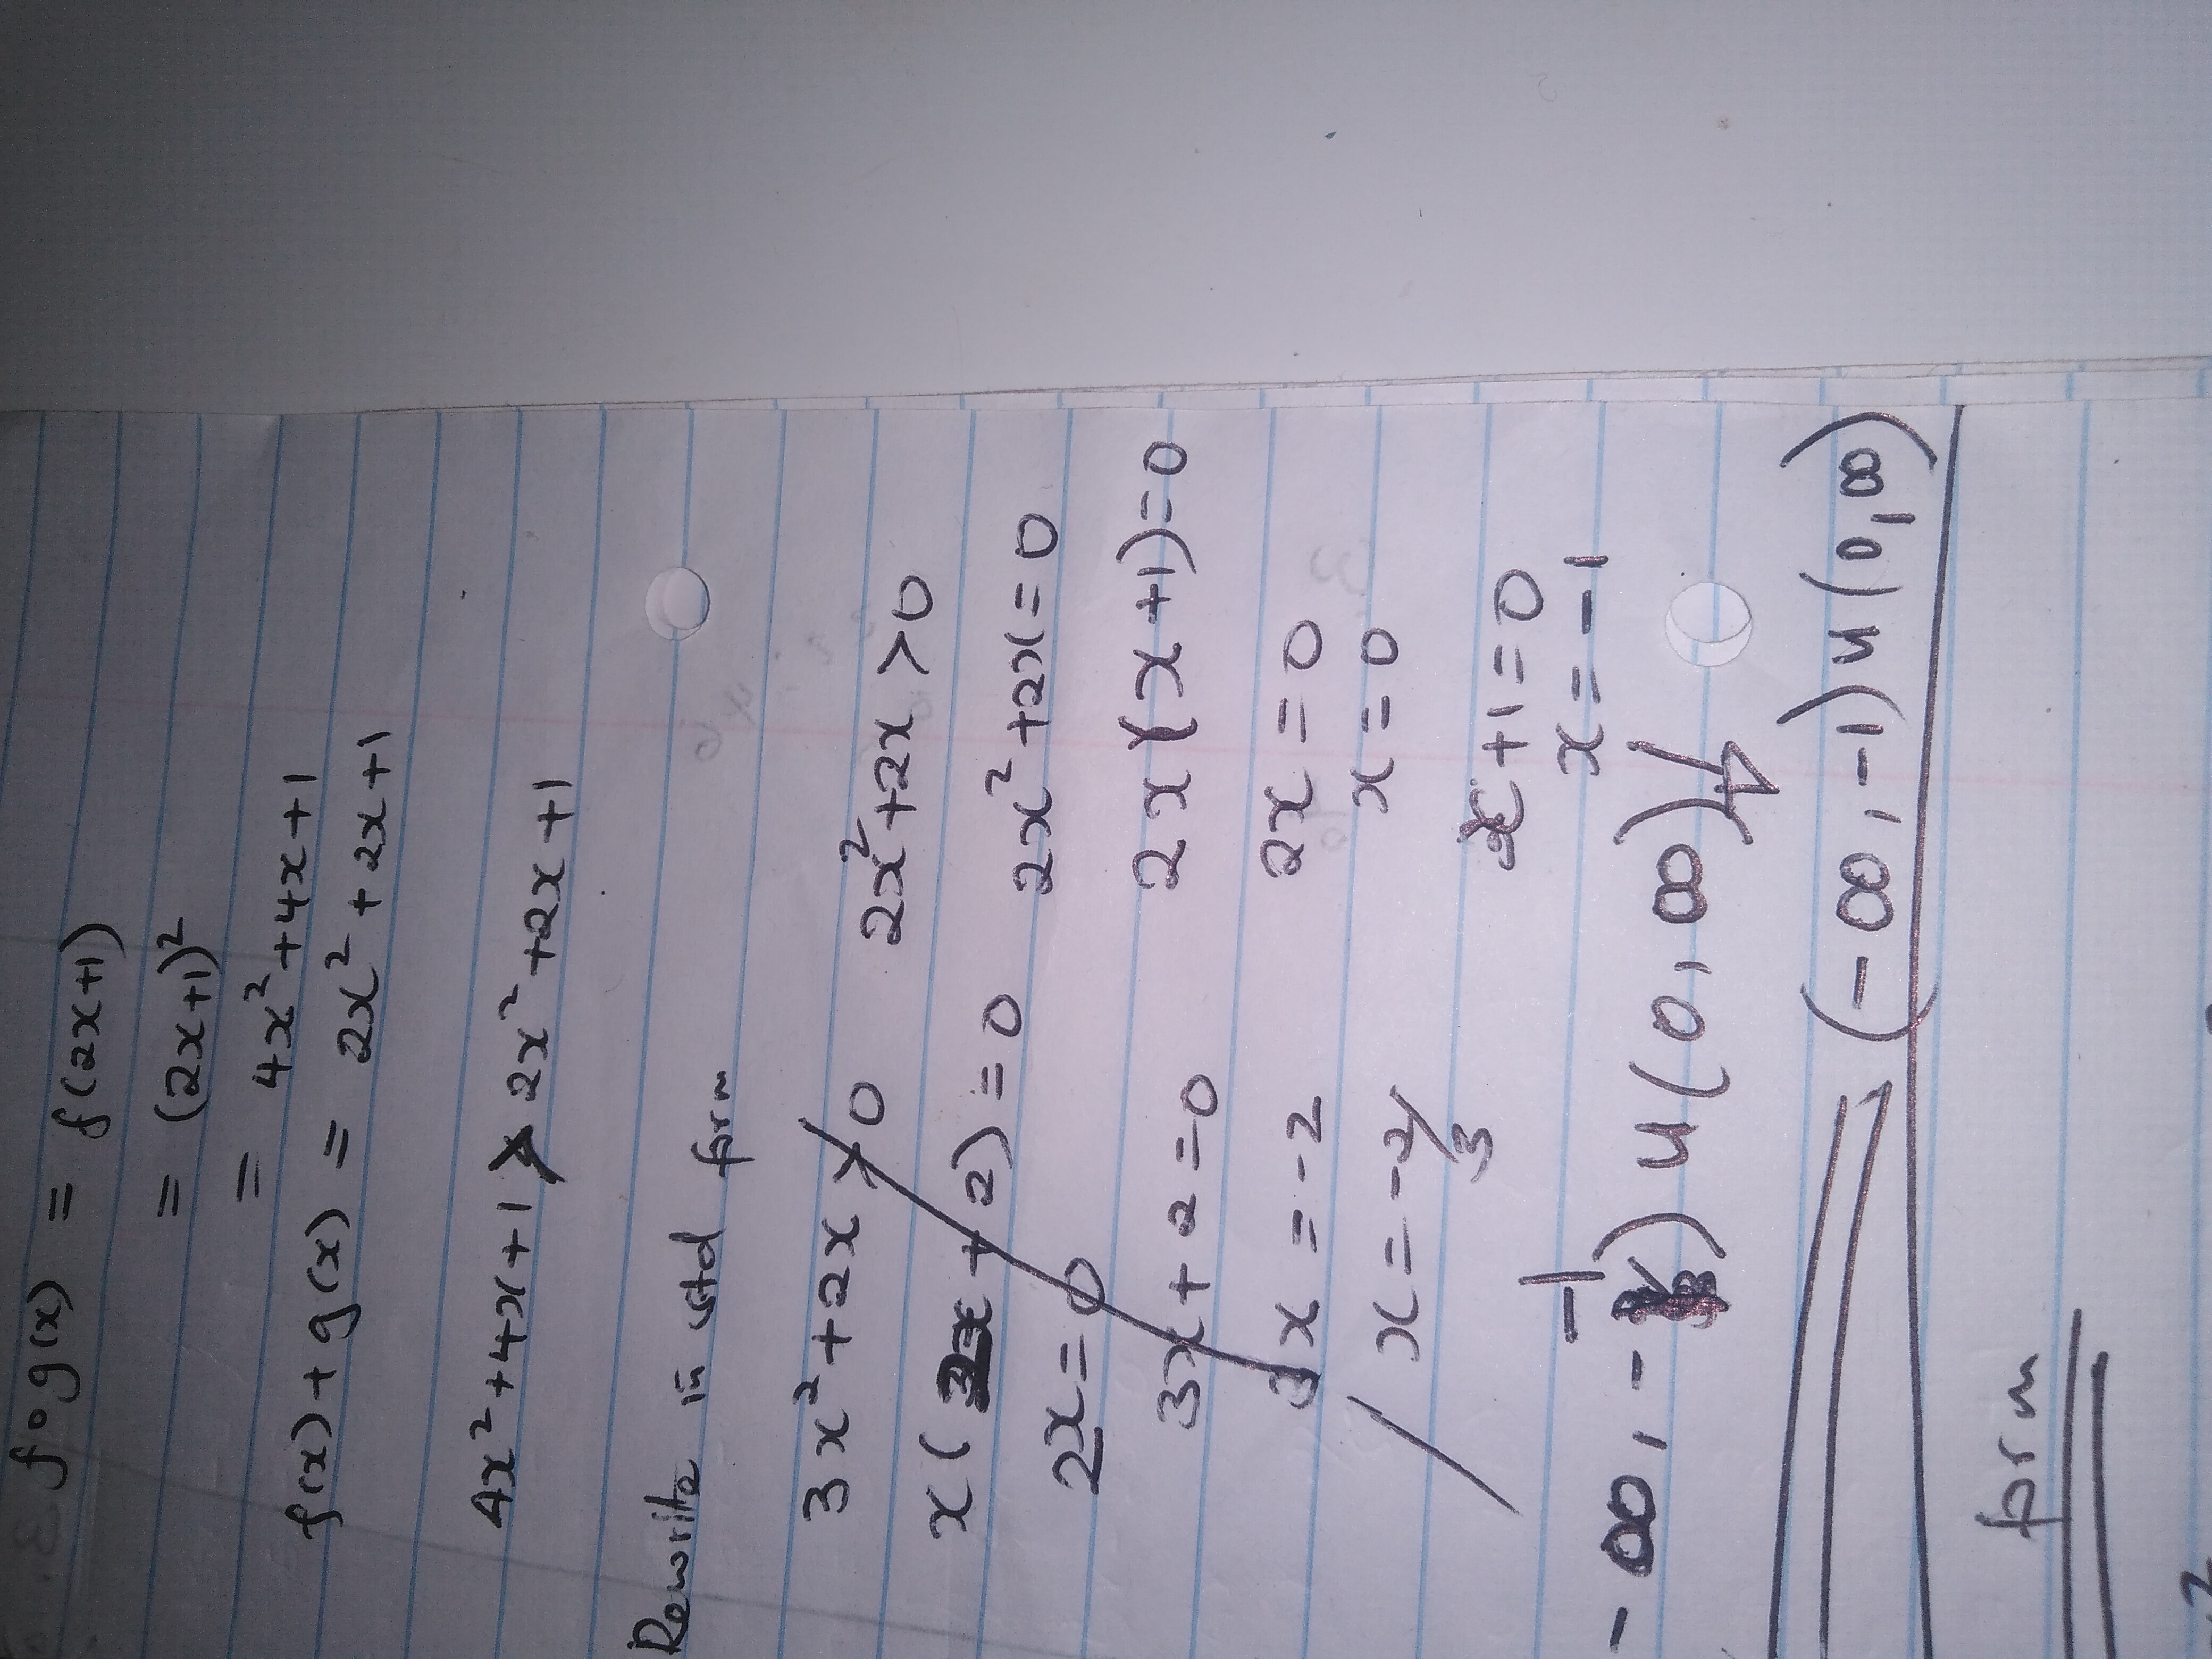 f∘g(x) = f(2x+1)
= (2x+1)²
= 4x²+4x+1
f(x)+g(x) = 2x²+2x+1
4x²+4x+1 > 2x²+2x+1
Rewrite in std form
3x²+2x > 0 2x²+2x > 0
x(3x+2) = 0 2x²+2x = 0
2x = 0 2x(x+1) = 0
3x+2 = 0 2x = 0
3x = -2 x = 0
x = -2/3 x+1 = 0
x = -1
-∞, -1) u (0, ∞)
(-∞, -1) u (0, ∞)
form